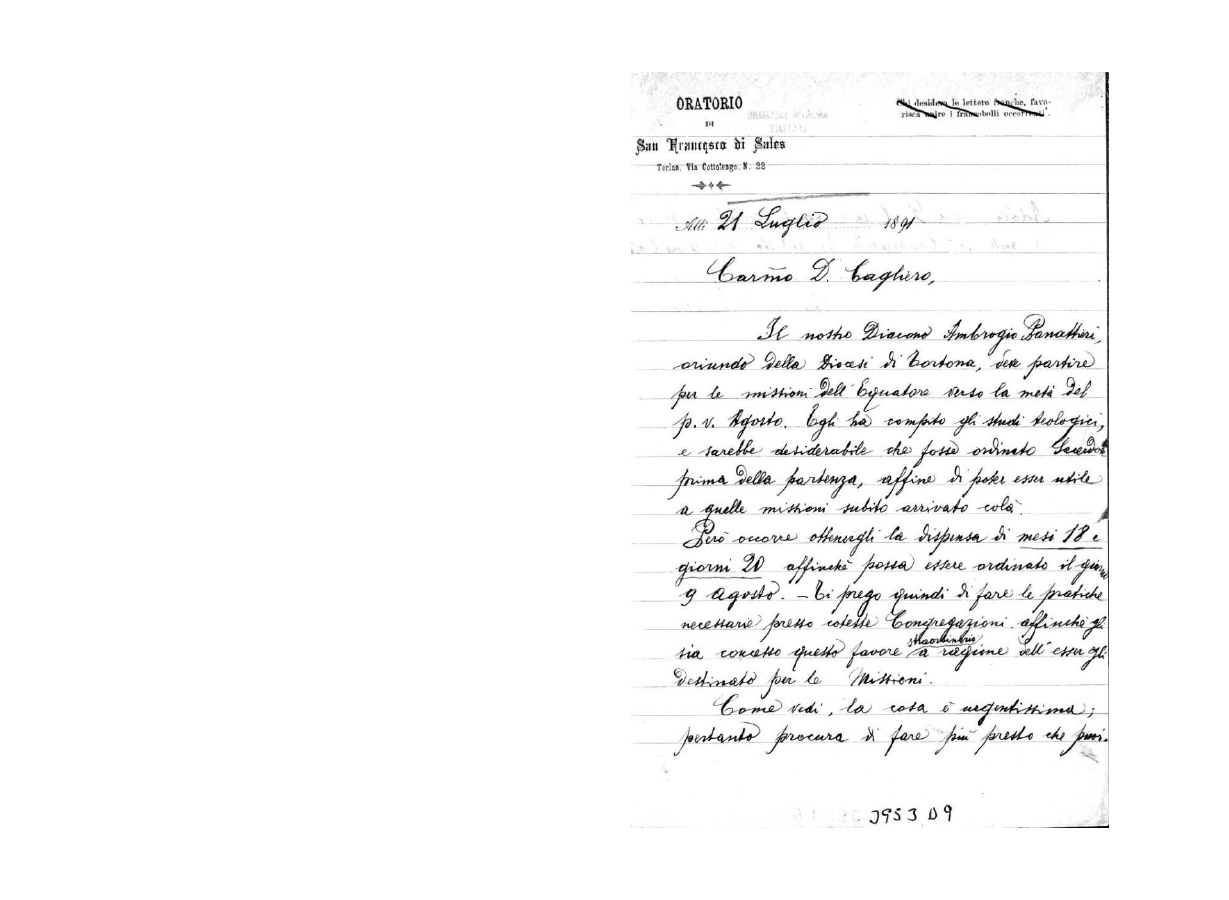 ORATORIO
DI
San Francesco di Sales
Torino, Via Cottolengo, N. 32
Chi desidera le lettere franche, favo-
risca unire i francobolli occorrenti.
Alli 21 Luglio 1891
Carmo D. Cagliero,
Il nostro Diacono Ambrogio Panattieri,
oriundo della Diocesi di Tortona, deve partire
per le missioni dell'Equatore verso la metà del
p. v. Agosto. Egli ha compito gli studi teologici,
e sarebbe desiderabile che fosse ordinato Sacerdote
prima della partenza, affine di poter esser utile
a quelle missioni subito arrivato colà.
Però occorre ottenergli la dispensa di mesi 18 e
giorni 20 affinchè possa essere ordinato il giorno
9 Agosto. - Ti prego quindi di fare le pratiche
necessarie presso coteste Congregazioni affinchè gli
sia concesso questo favore straordinario a ragione dell'esser egli
destinato per le Missioni.
Come vedi, la cosa è urgentissima;
pertanto procura di fare più presto che puoi.
J953 D9